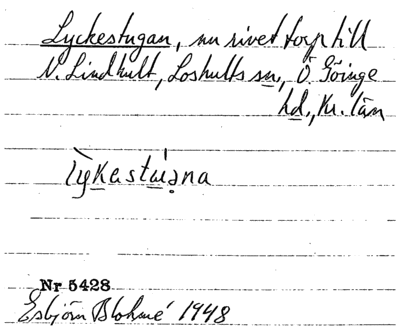 Lyckestugan, nu rivet torp till
N. Lindhult, Loshults sn, Ö. Göinge
hd., Kr. län
Nr 5428
Esbjörn Blohmé 1948